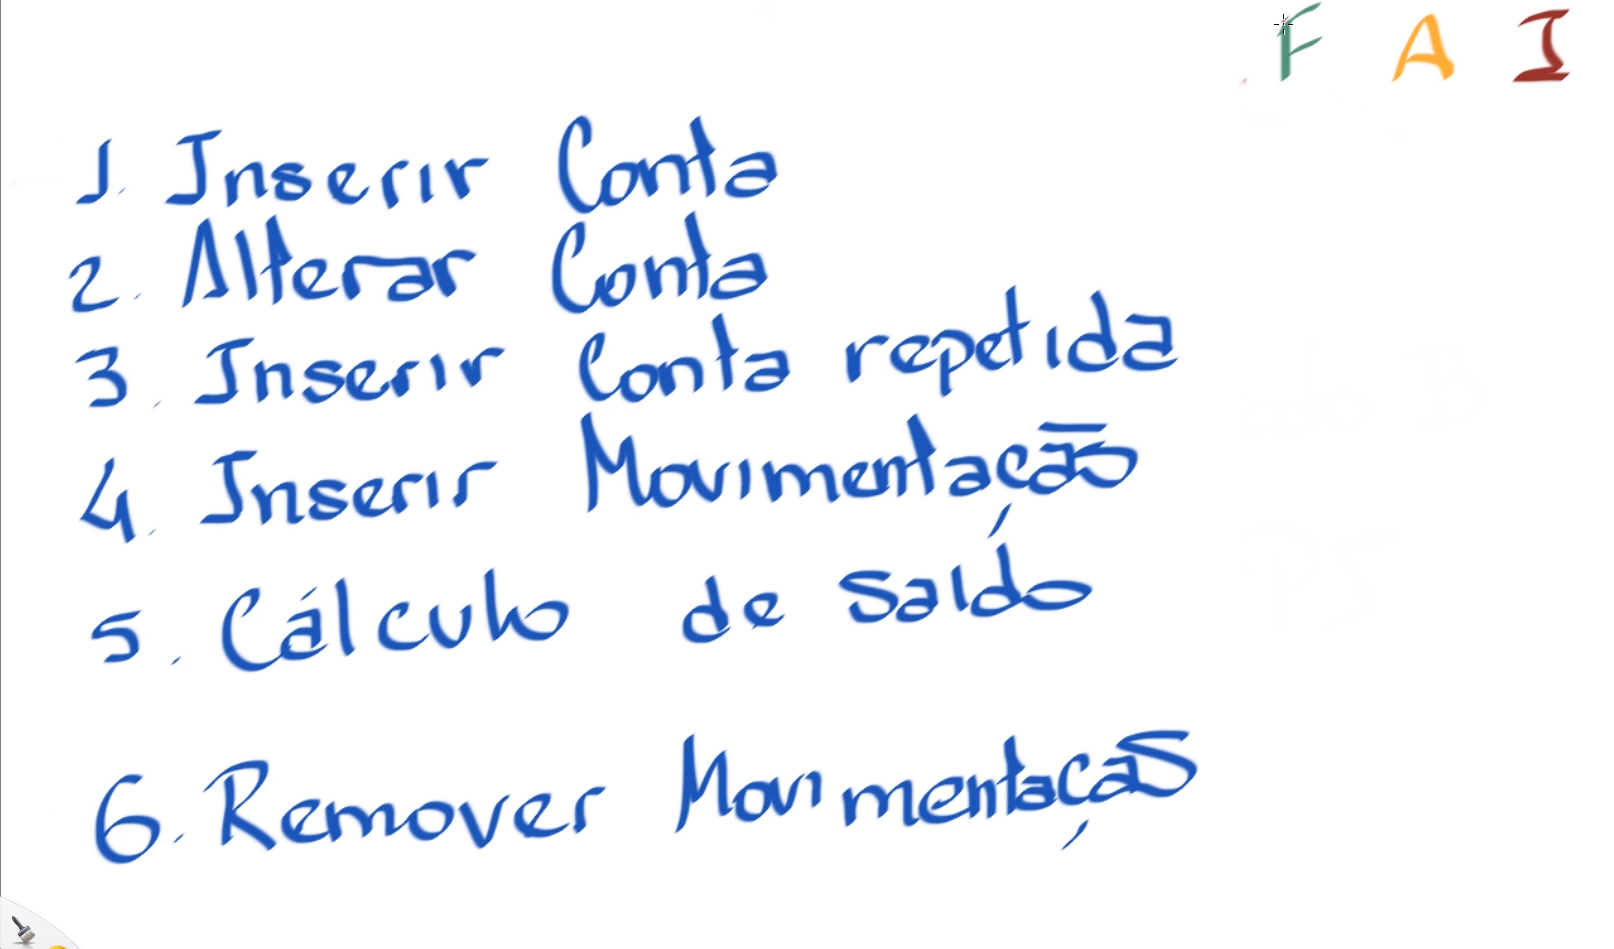 F A I
1. Inserir Conta
2. Alterar Conta
3. Inserir Conta repetida
4. Inserir Movimentação
5. Cálculo de saldo
6. Remover Movimentação